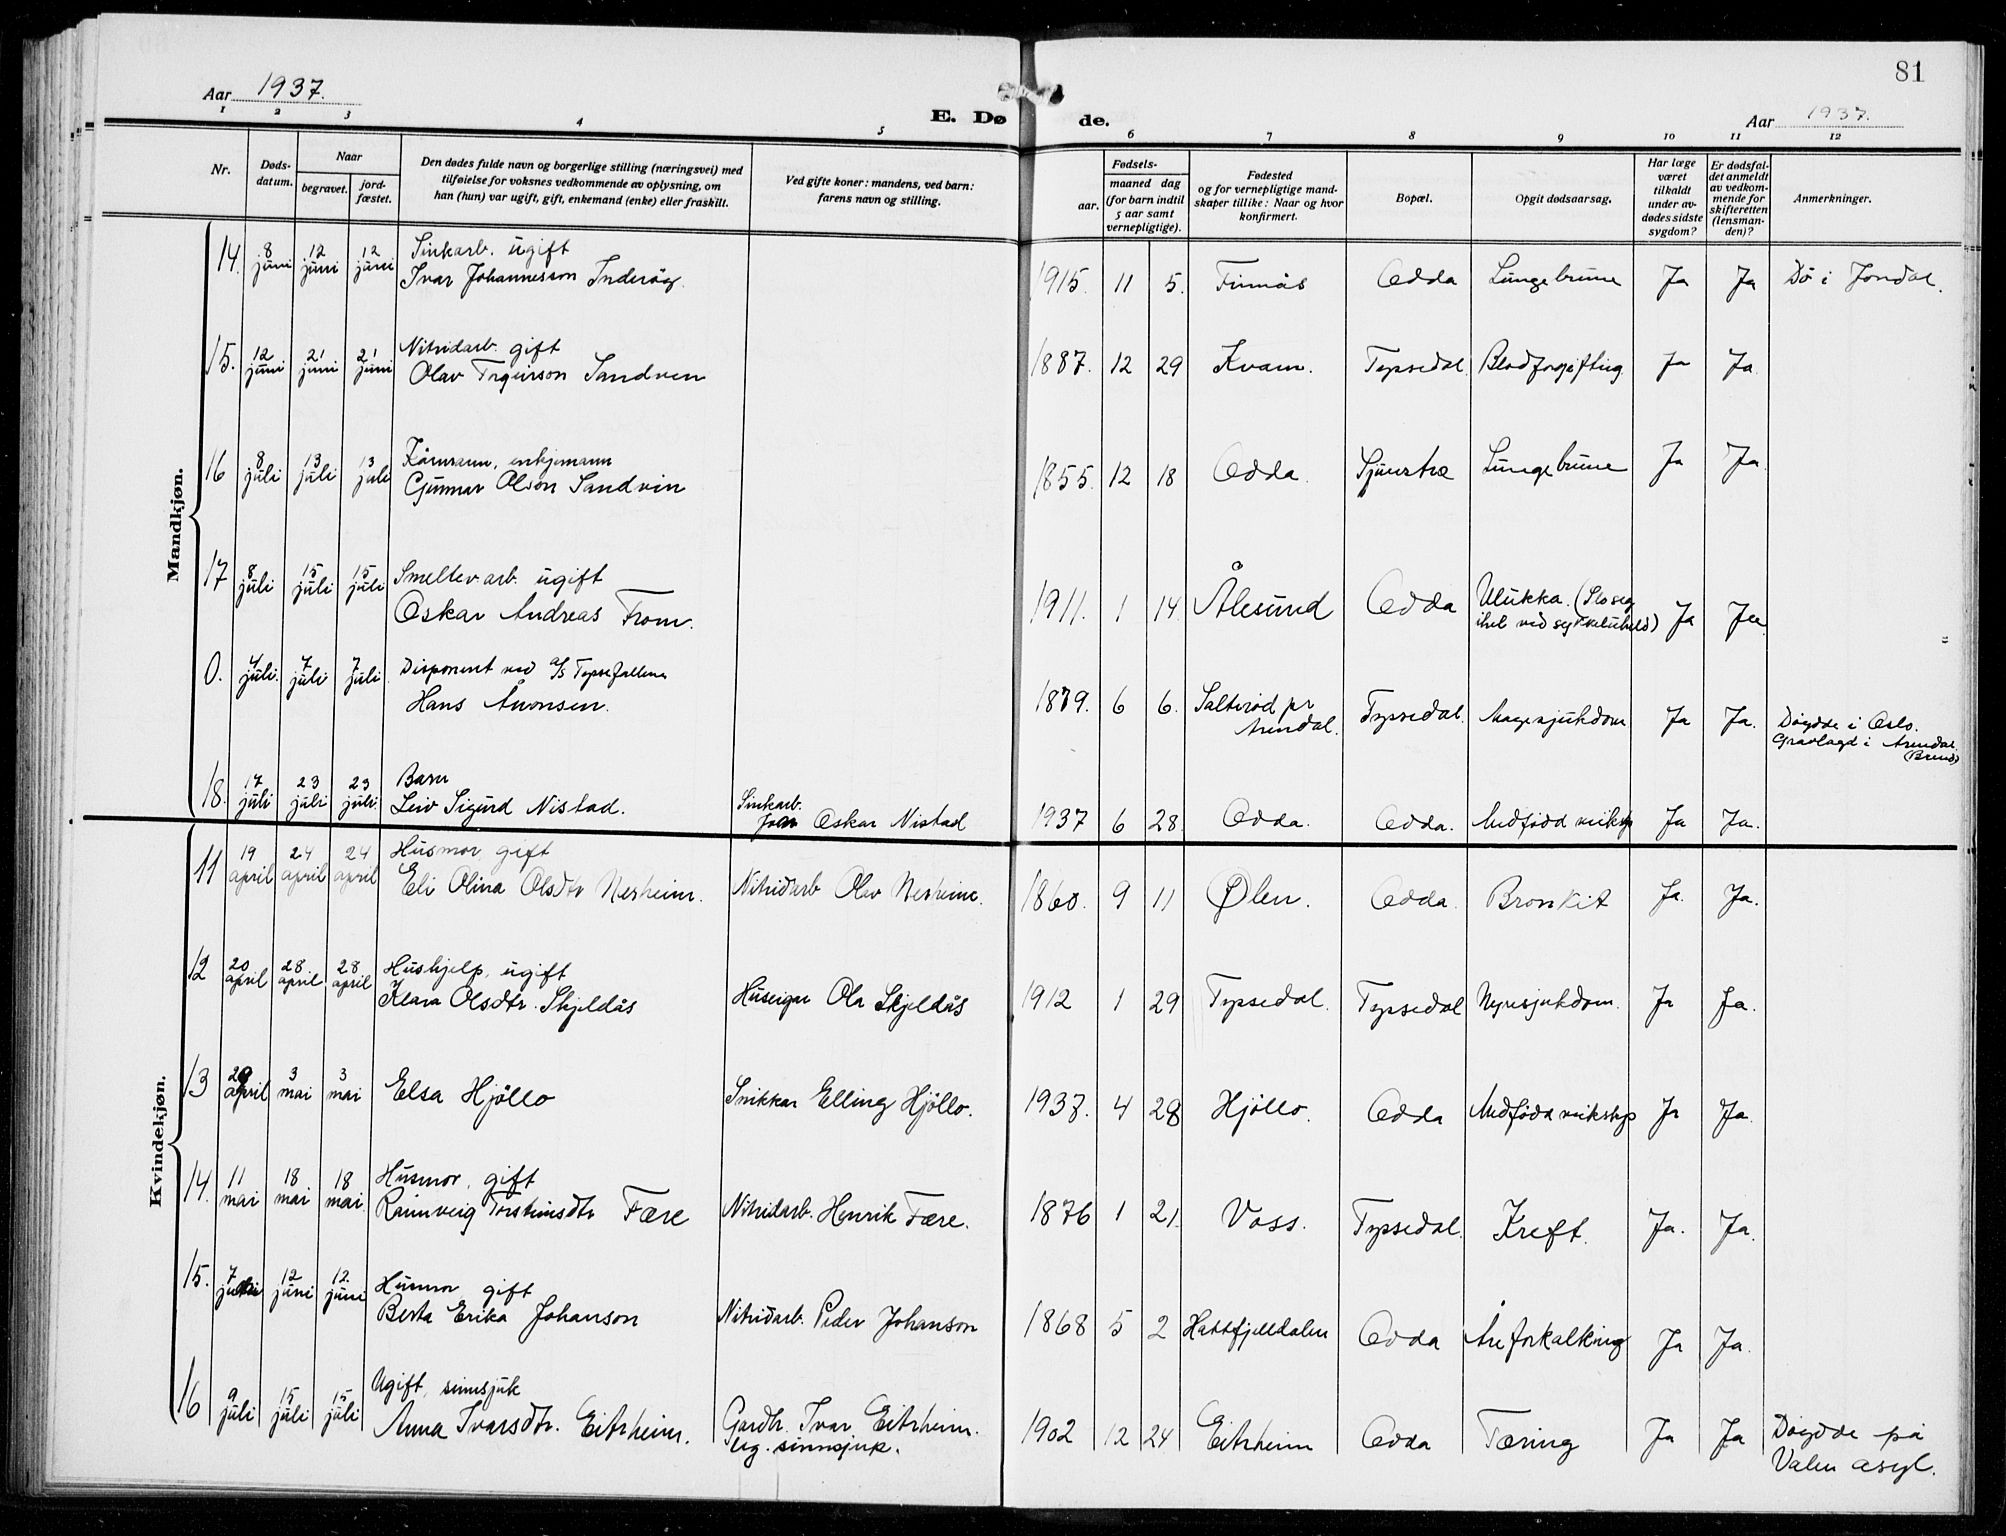 81
Aar 1937.
E. Dø
de.
Aar 1937.
1 2 3 4 5 6 7 8 9 10 11 12
Nr.
Døds-
datum.
Naar
begravet.
jord-
fæstet.
Den dødes fulde navn og borgerlige stilling (næringsvei) med
tilføielse for voksnes vedkommende av oplysning, om
han (hun) var ugift, gift, enkemand (enke) eller fraskilt.
Ved gifte koner: mandens, ved barn:
farens navn og stilling.
Fødsels-
aar.
maaned dag
(for barn indtil
5 aar samt
vernepligtige).
Fødested
og for vernepligtige mand-
skaper tillike: Naar og hvor
konfirmert.
Bopæl.
Opgit dødsaarsag.
Har læge
været
tilkaldt
under av-
dødes sidste
sygdom?
Er dødsfal-
det anmeldt
av vedkom-
mende for
skifteretten
(lensman-
den)?
Anmerkninger.
Mandkjøn.
14. 8 juni 12 juni 12 juni Sinkarb. ugift
Ivar Johannesson 1915. 11 5. Finnås Odda Lungebrune Ja Ja Dö i Jondal.
15. 12 juni 21 juni 21 juni Nitridarb. gift
Olav Torgeirson Sandven 1887. 12 29 Kvam. Tyssedal. Blodforgiftnig Ja Ja
16 8 juli 13 juli 13 juli Kårmann, enkjemann
Gunnar Olson Sandvin 1855. 12 18 Odda. Lungebrune Ja Ja
17 8 juli 15 juli 15 juli Smeltev.arb. ugift
Oskar Andreas From. 1911. 1 14. Ålesund Odda Ulukka. (Slo seg
ihel ved sykkeluheld) Ja Ja
0. 4 juli. 7 juli 7 juli Disponent ved A/S Tyssefallene
Hans Aronsen. 1879. 6 6. Salterød pr
Arendal. Tyssedal. Magesjukdom Ja Ja. Döydde i Oslo.
Gravlagd i Arendal.
18. 17 juli 23 juli 23 juli Barn
Leiv Sigurd Nistad. Sinkarb.
Oskar Nistad 1937 6 28. Odda. Odda. Medfödd veikskp Ja Ja.
Kvindekjøn.
11 19 april 24 april 24 april Husmor, gift
Eli Olina Olsdtr Nesheim. Nitridarb Olav Nesheim. 1860. 9 11 Ølen. Odda. Bronkit Ja. Ja.
12 20 april 28 april 28 april Hushjelp, ugift
Klara Olsdtr. Skjeldås Huseigar Ola Skjeldås 1912 1 29 Tyssedal. Tyssedal Nyresjukdom. Ja Ja.
13 29 april 3 mai 3 mai Elsa Hjöllo Snikkar Elling Hjöllo. 1937. 4 28 Hjöllo. Odda Medfödd veikskp Ja Ja.
14. 11 mai 18 mai 18 mai Husmor, gift
Rannveig Torsteinsdtr Fære Nitridarb. Henrik Fære. 1876 1 21. Voss. Tyssedal. Kreft. Ja. Ja.
15. 7 juni 12 juni 12 juni Husmor gift
Berta Erika Johanson Nitridarb. Peder Johanson 1868 5 2 Hattfjelldalen Odda Åreforkalkning Ja Ja.
16 9 juli 15 juli 15 juli Ugift, sinnsjuk
Anna Ivarsdtr. Eitrheim. Gardbr. Ivar Eitrheim.
ug. sinnsjuk. 1902 12 24 Eitrheim Odda Tæring Ja Ja Döydde på
Valen asyl.